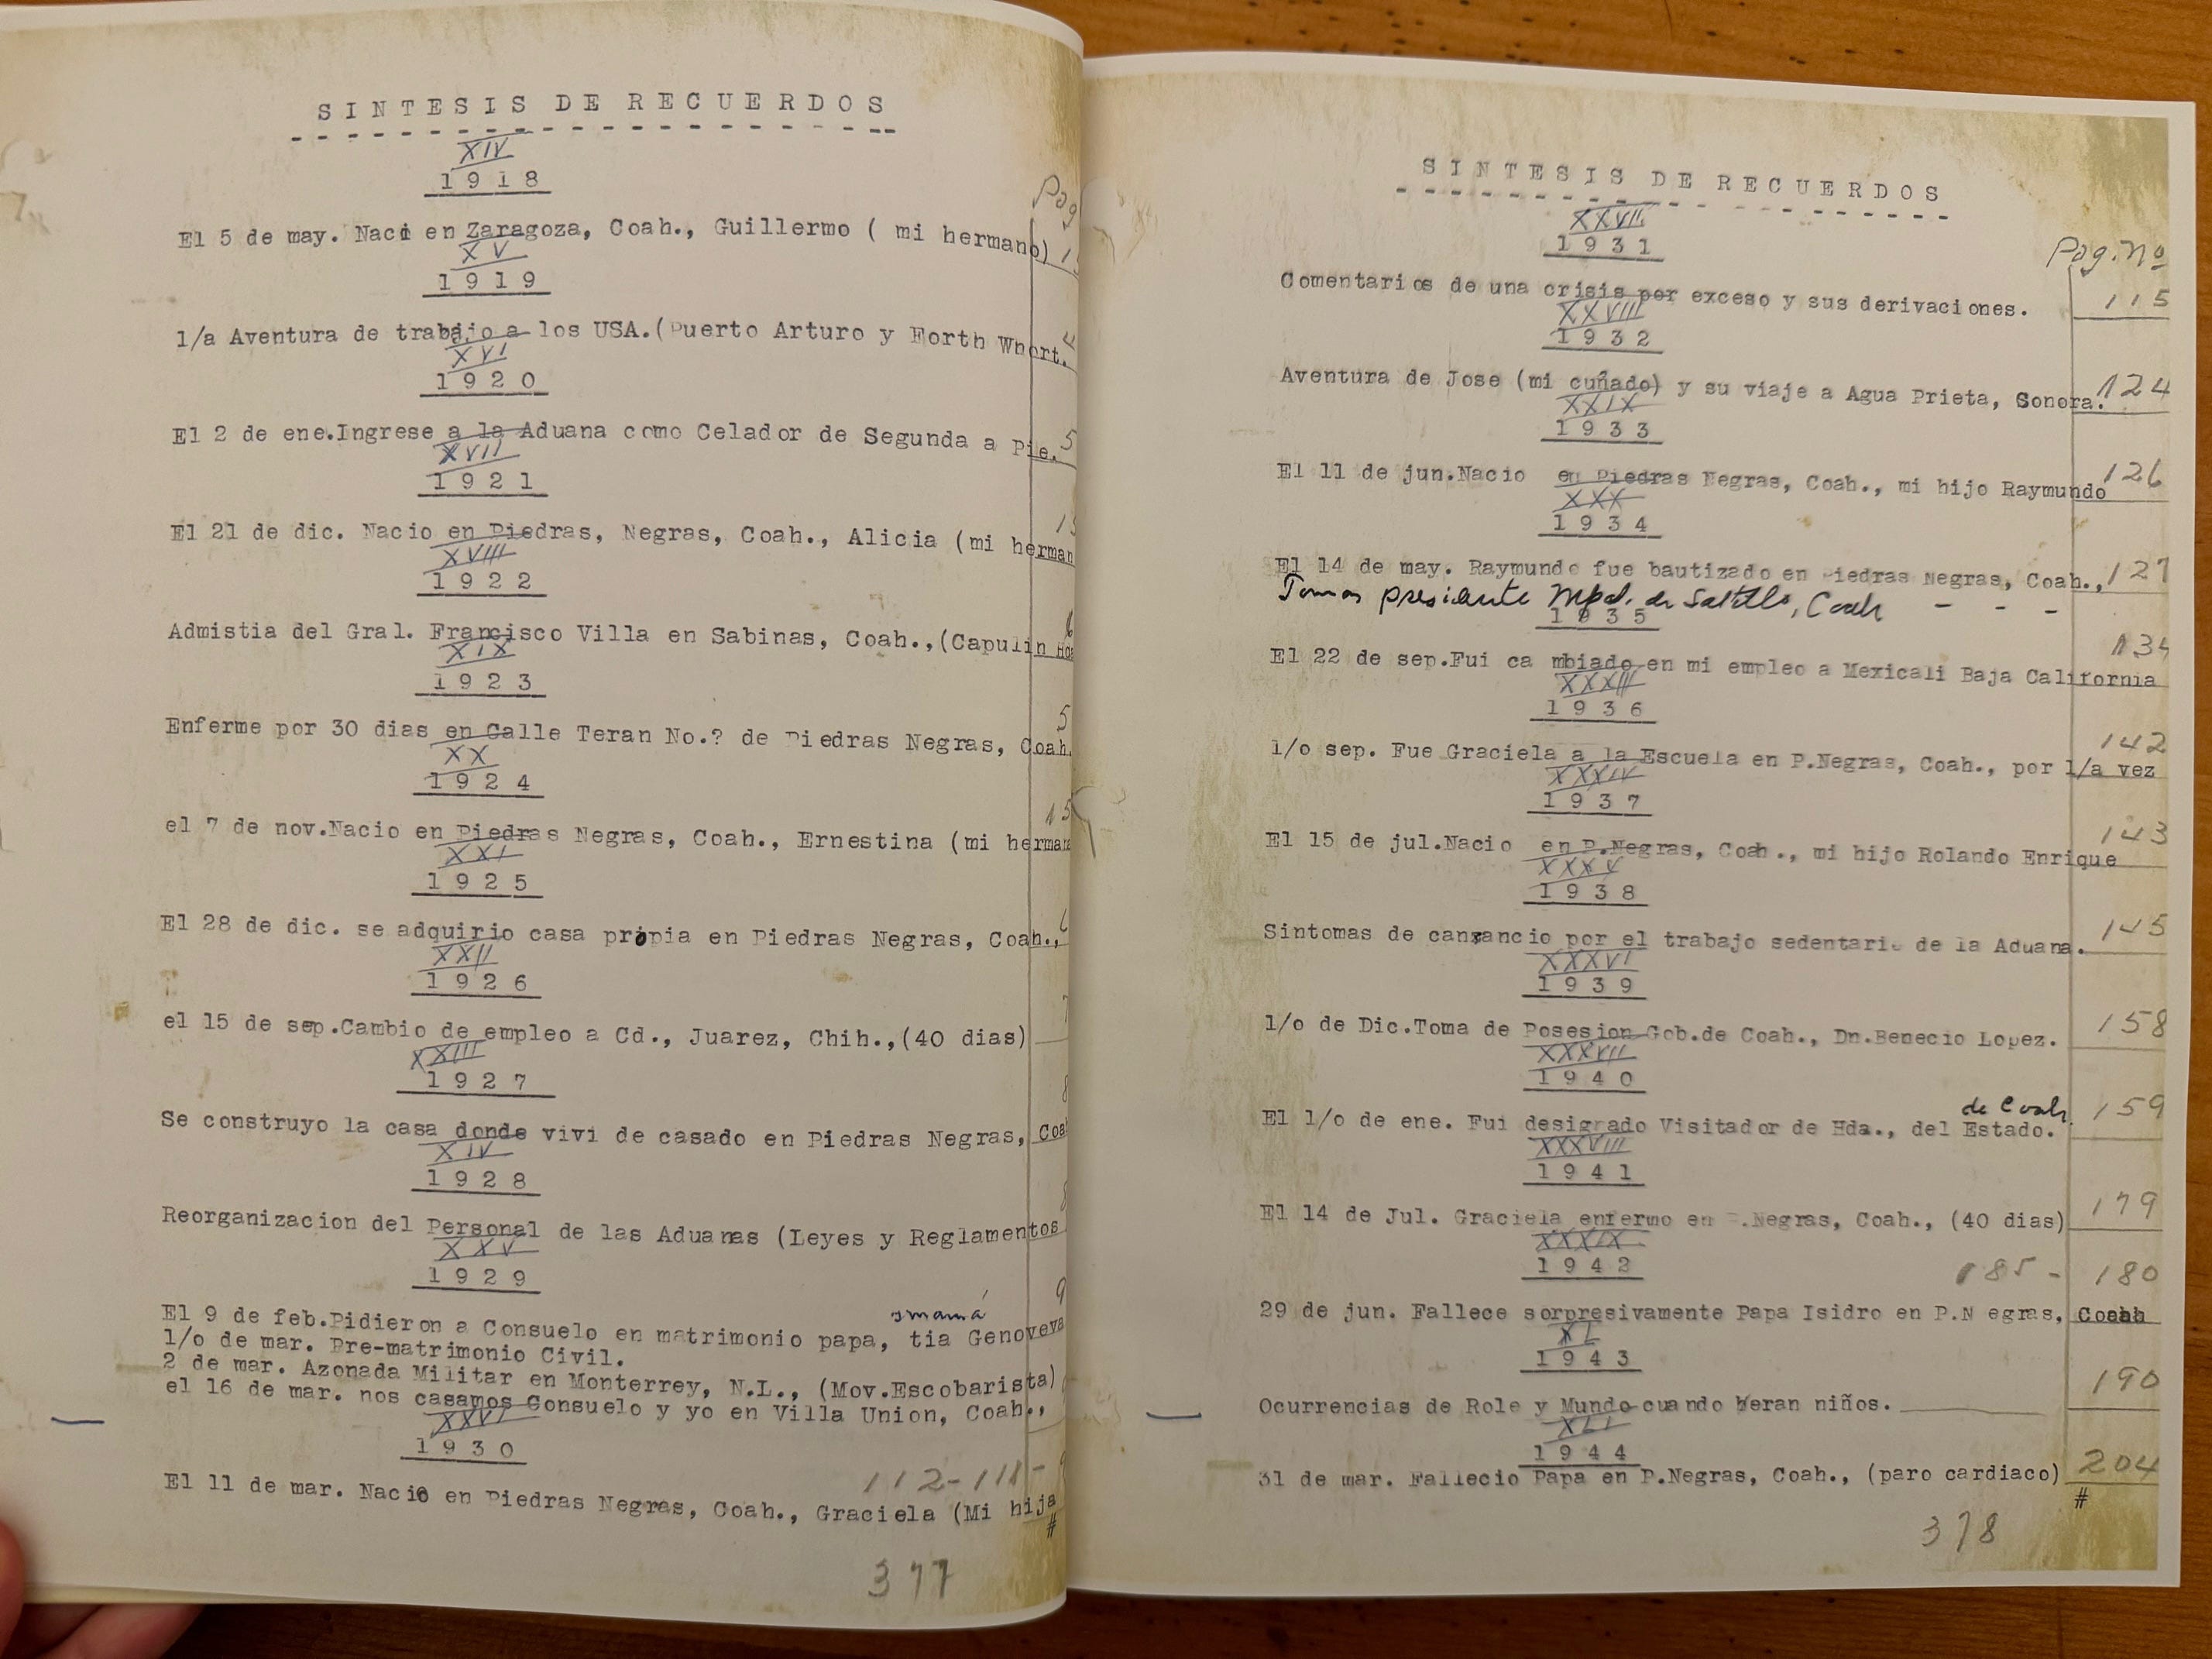 SINTESIS DE RECUERDOS
XIV
1918
Pag
El 5 de may. Naci en Zaragoza, Coah., Guillermo ( mi hermano)
XV
1919
1/a Aventura de trabajo a los USA.(Puerto Arturo y Forth Whort.
XVI
1920
El 2 de ene.Ingrese a la Aduana como Celador de Segunda a Pie.
XVII
1921
El 21 de dic. Nacio en Piedras, Negras, Coah., Alicia (mi herman
XVIII
1922
Admistia del Gral. Francisco Villa en Sabinas, Coah.,(Capulin
XIX
1923
Enferme por 30 dias en Calle Teran No.? de Piedras Negras, Coah.
XX
1924
el 7 de nov.Nacio en Piedras Negras, Coah., Ernestina (mi herman
XXI
1925
El 28 de dic. se adquirio casa propia en Piedras Negras, Coah.,
XXII
1926
el 15 de sep.Cambio de empleo a Cd., Juarez, Chih.,(40 dias)
XXIII
1927
Se construyo la casa donde vivi de casado en Piedras Negras, Coa
XIV
1928
Reorganizacion del Personal de las Aduanas (Leyes y Reglamentos
XXV
1929
y mamá
El 9 de feb.Pidieron a Consuelo en matrimonio papa, tia Genoveva
1/o de mar. Pre-matrimonio Civil.
2 de mar. Azonada Militar en Monterrey, N.L., (Mov.Escobarista)
el 16 de mar. nos casamos Consuelo y yo en Villa Union, Coah.,
XXVI
1930
112-111-
El 11 de mar. Nacio en Piedras Negras, Coah., Graciela (Mi hija
#
377
SINTESIS DE RECUERDOS
XXVII
1931
Pag. No
Comentarios de una crisis por exceso y sus derivaciones. 115
XXVIII
1932
Aventura de Jose (mi cuñado) y su viaje a Agua Prieta, Sonora. 124
XXIX
1933
El 11 de jun.Nacio en Piedras Negras, Coah., mi hijo Raymundo 126
XXX
1934
El 14 de may. Raymundo fue bautizado en Piedras Negras, Coah., 127
Tomas presidente Mpal. de Saltillo, Coah - - -
1935
El 22 de sep.Fui ca mbiado en mi empleo a Mexicali Baja California 134
XXXIII
1936
1/o sep. Fue Graciela a la Escuela en P.Negras, Coah., por 1/a vez 142
XXXIV
1937
El 15 de jul.Nacio en P.Negras, Coah., mi hijo Rolando Enrique 143
XXXV
1938
Sintomas de cansancio por el trabajo sedentario de la Aduana. 145
XXXVI
1939
1/o de Dic.Toma de Posesion Gob.de Coah., Dn.Benecio Lopez. 158
XXXVII
1940
de Coah.
El 1/o de ene. Fui designado Visitador de Hda., del Estado. 159
XXXVIII
1941
El 14 de Jul. Graciela enfermo en P.Negras, Coah., (40 dias) 179
XXXIX
1942
185 - 180
29 de jun. Fallece sorpresivamente Papa Isidro en P.N egras, Coah
XL
1943
Ocurrencias de Role y Mundo cuando eran niños. 190
XLI
1944
31 de mar. Fallecio Papa en P.Negras, Coah., (paro cardiaco) 204
#
378